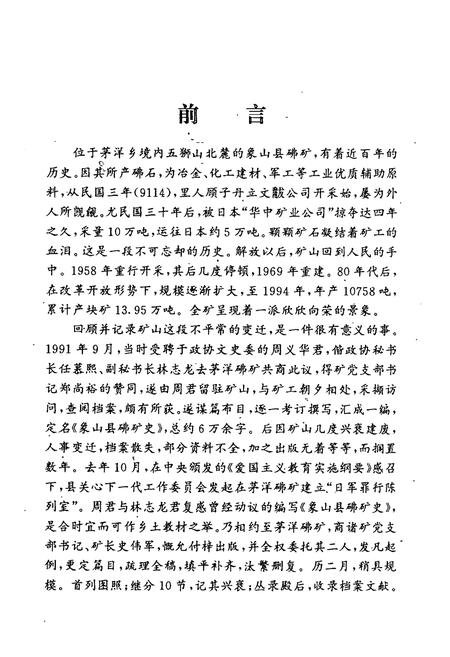 前言
位于茅洋乡境内五狮山北麓的象山县砩矿，有着近百年的
历史。因其所产砩石，为冶金、化工建材、军工等工业优质辅助原
料，从民国三年(9114)，里人顾子丹立文黻公司开采始，屡为外
人所觊觎。尤民国三十年后，被日本“华中矿业公司”掠夺达四年
之久，采量10万吨，运往日本约5万吨。颗颗矿石凝结着矿工的
血泪。这是一段不可忘却的历史。解放以后，矿山回到人民的手
中。1958年重行开采，其后几度停顿，1969年重建。80年代后，
在改革开放形势下，规模逐渐扩大，至1994年，年产10758吨，
累计产块矿13.95万吨。全矿呈现着一派欣欣向荣的景象。
回顾并记录矿山这段不平常的变迁，是一件很有意义的事。
1991年9月，当时受聘于政协文史委的周义华君，偕政协秘书
长任慕熙、副秘书长林志龙去茅洋砩矿共商此议，得矿党支部书
记郑尚裕的赞同，遂由周君留驻矿山，与矿工朝夕相处，采撷访
问，查阅档案，颇有所获。遂谋篇布目，逐一考订撰写，汇成一编，
定名《象山县砩矿史》，总约6万余字。后因矿山几度兴衰建废，
人事变迁，档案散失，部分资料不全，加之出版无着等等，而搁置
数年。去年10月，在中央颁发的《爱国主义教育实施纲要》感召
下，县关心下一代工作委员会发起在茅洋砩矿建立“日军罪行陈
列室”。周君与林志龙君复感曾经动议的编写《象山县砩矿史》，
是合时宜而可作乡土教材之举。乃相约至茅洋砩矿，商诸矿党支
部书记、矿长史伟军，慨允付梓出版，并全权委托其二人，发凡起
例，更定篇目，疏理全稿，填平补齐，汰繁删复。历二月，稍具规
模。首列图照；继分10节，记其兴衰；丛录殿后，收录档案文献。